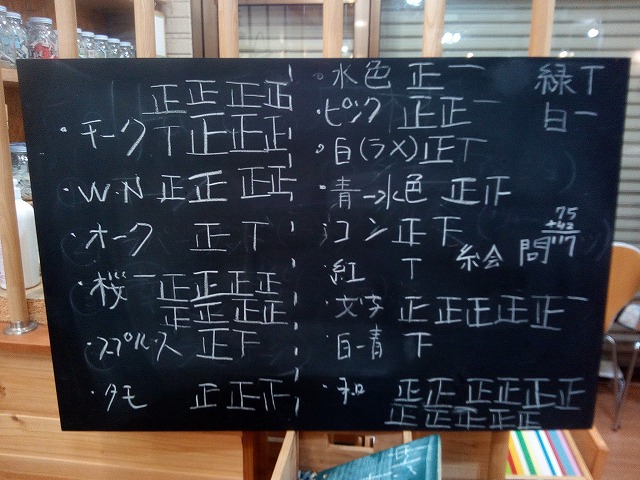 正正正正
・チーク T正正正
・W.N 正正正正
・オーク 正T
・桜 一正正正正
正正正正
・スプルース 正下
・タモ 正正正
・水色 正一
・ピンク 正正一
・白(ラメ)正T
・青→水色 正正
・コン 正下
・紅 T
・文字 正正正正正一
・白→青 下
・和 正正正正正正
正正正正正
緑T
白一
75
+42
117
絵会 問